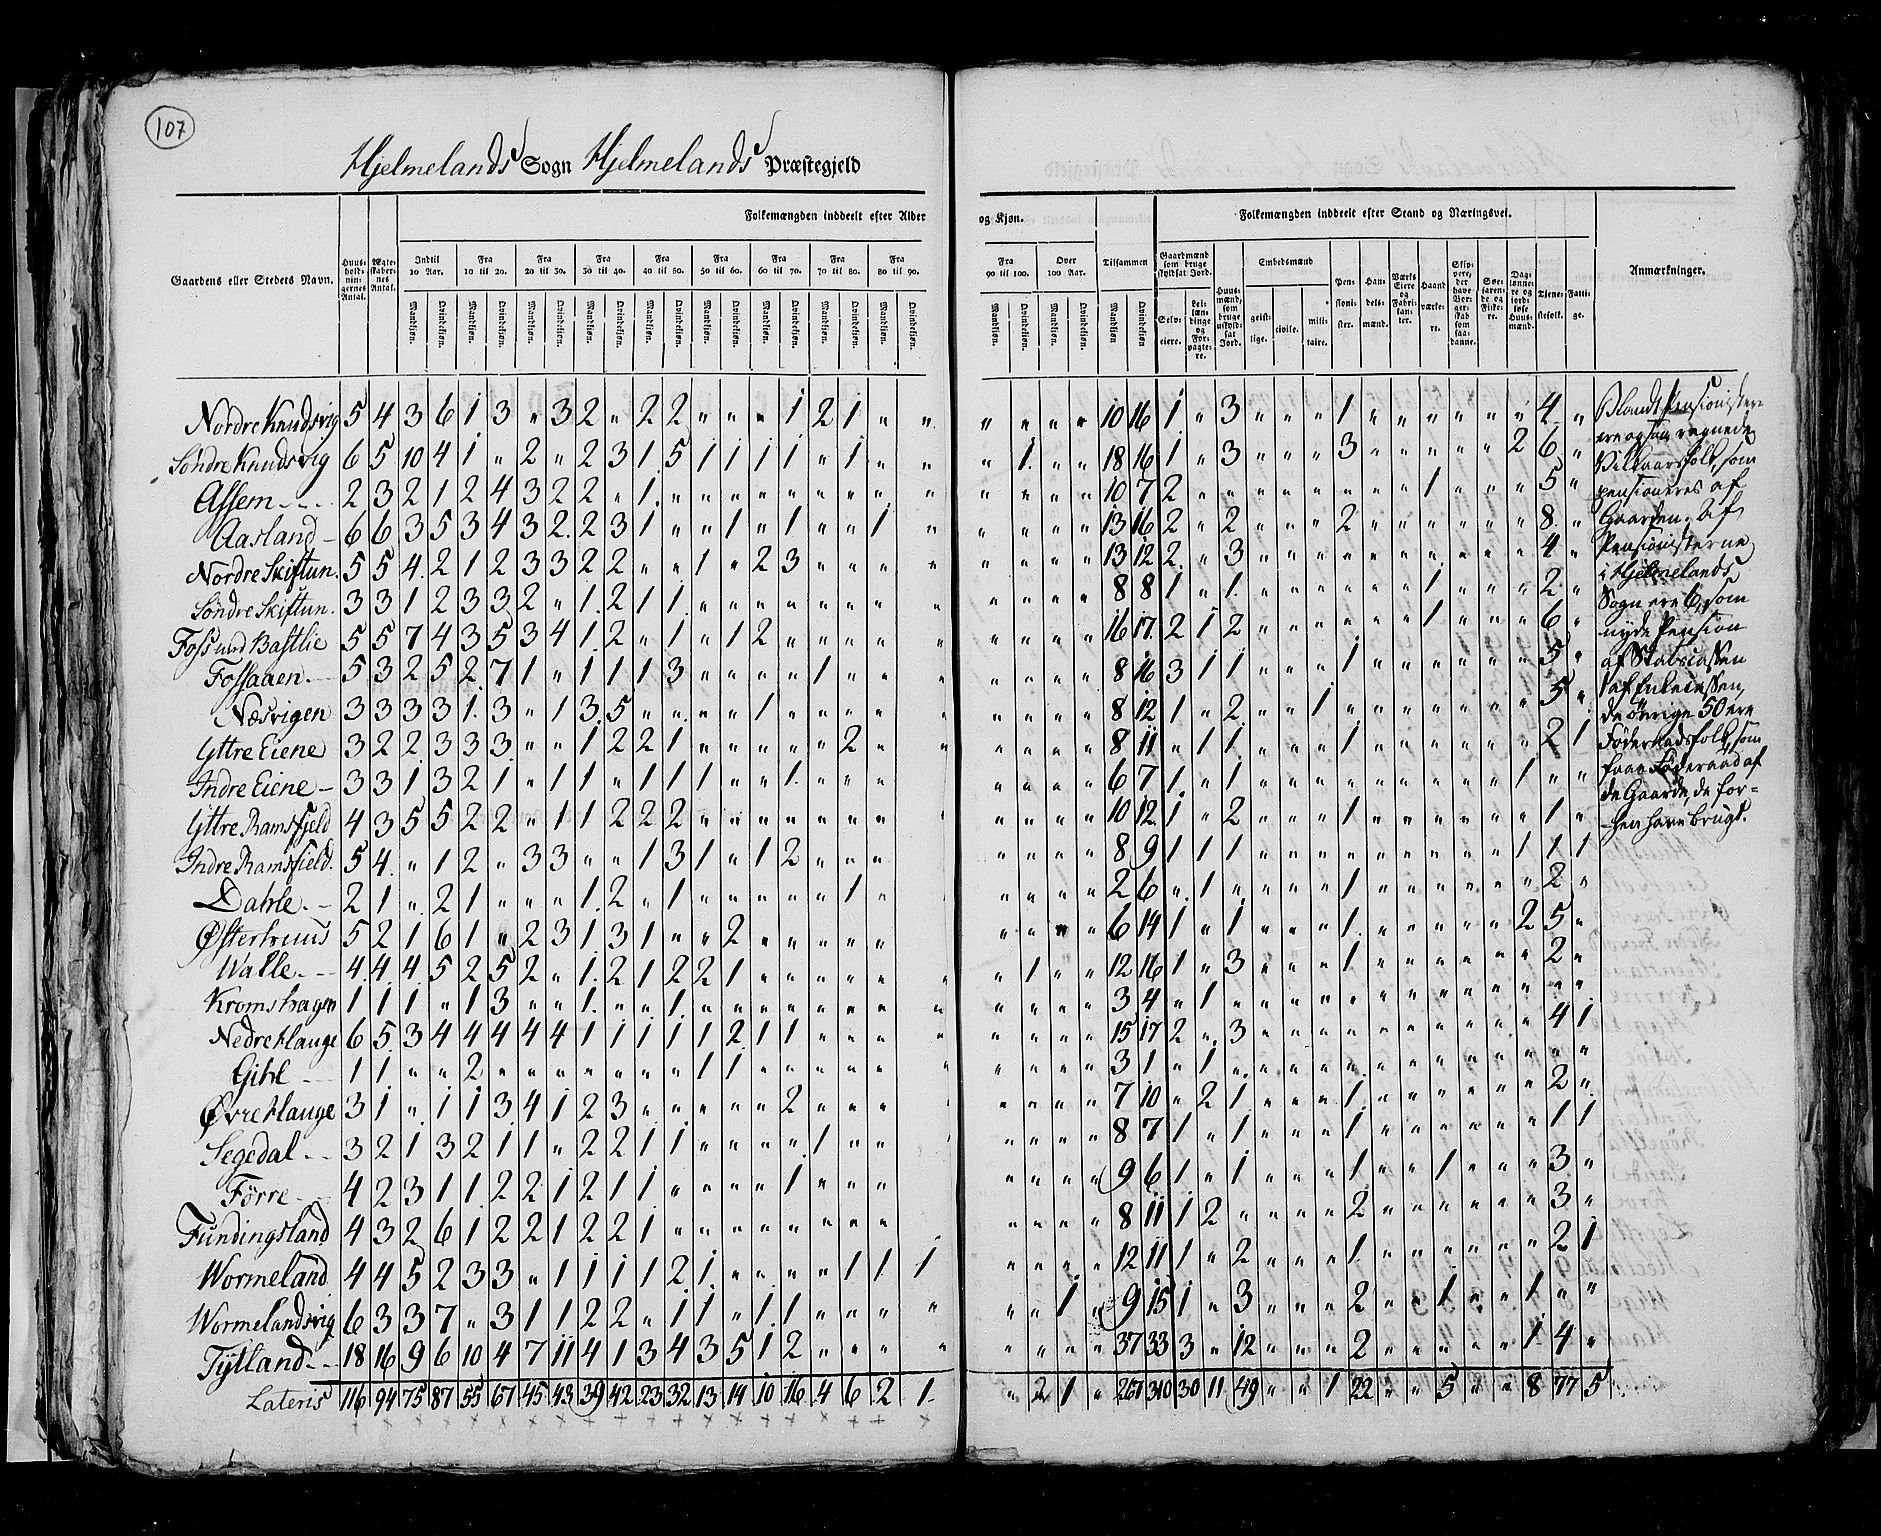 107
Hjelmelands Sogn Hjelmelands Præstegjeld
Folkemængden inddeelt efter Alder og Kjøn. Folkemængden inddeelt efter Stand og Næringsvei.
Gaardens eller Stedets Navn. Huus-holdnin-gernes Antal. Ægte-skaber-nes Antal. Indtil 10 Aar. Fra 10 til 20. Fra 20 til 30. Fra 30 til 40. Fra 40 til 50. Fra 50 til 60. Fra 60 til 70. Fra 70 til 80. Fra 80 til 90. Fra 90 til 100. Over 100 Aar. Tilsammen Gaardmænd som bruge skyldsat Jord. Huus-mænd, som bruge uskyld-sat Jord. Embedsmænd Pen-sioni-ster. Han-dels-mænd. Værks Eiere og Fabri-kan-ter. Haand-værke-re. Søe-faren-de og Fiske-re. Dag-lønne-re og jord-løse Huus-mænd. Tjene-stefolk. Fatti-ge. Anmærkninger.
Mandkjøn. Qvindekjøn. Selv-eiere. Lei-læn-dinge og For-pagte-re. geist-lige. civile. mili-taire.
Nordre Knudsvig 5 4 3 6 1 3 " 3 2 " 2 2 " " " 1 2 1 " " " " " " 10 16 1 " 3 " " " 1 " " " " " " 4 "
Søndre Knudsvig 6 5 10 4 1 " 2 " 2 3 1 5 1 1 1 1 " 1 " " " 1 " " 18 16 1 " 3 " " " 3 " " " " " 2 6 "
Assem 2 3 2 1 2 4 3 2 2 " 1 " " " " " " " " " " " " " 10 7 2 " " " " " " " " 1 " " " 5 "
Aasland 6 6 3 5 3 4 3 2 2 3 1 " " 1 " 1 " " 1 " " " " " 13 16 2 " 2 " " " 2 " " " " " " 8 "
Nordre Skiftun 5 5 4 2 1 2 3 3 2 2 " " 1 " 2 3 " " " " " " " 13 12 2 " 3 " " " " " " " " " " 4 "
Søndre Skiftun 3 3 1 2 3 3 2 " 1 2 1 1 " " " " " " " " " " " " 8 8 1 " 1 " " " " " " 1 " " " 2 "
Foss und Bastlie 5 5 7 4 3 5 3 4 1 2 " 1 " 1 2 " " " " " " " " 16 17 2 1 2 " " " " " " 1 " " " 6 "
Fossaaen 5 3 2 5 2 7 1 " 1 1 1 3 " " " " 1 " " " " " " " 8 16 3 1 1 " " " 1 " " " " " " 5 "
Næsvigen 3 3 3 3 1 3 " 1 3 5 " " " " 1 " " " " " " " " 8 12 1 " 2 " " 1 " " " " " " " 5 "
Yttre Eiene 3 2 2 3 3 3 " " 1 2 2 1 " " " " " 2 " " " " " " 8 11 " 1 1 " " " 1 " " " " " " 2 1
Indre Eiene 3 3 1 3 2 1 " 1 1 " 1 1 1 " " 1 " " " " " " " 6 7 1 " 1 " " " " " " " " " 1 " "
Yttre Ramsfjeld 4 3 5 5 2 2 " 1 1 2 2 2 " " " " " " " " " " " 10 12 1 " 2 " " " 1 " " " " " " 1 "
Indre Ramsfield 5 4 " 1 2 " 3 3 " " 1 3 1 " 1 2 " " " " " " " 8 9 1 1 1 " " " " " " " " " 1 1 1
Dahle 2 1 " 2 1 " " " 1 2 " 1 " " " " " 1 " " " " " 2 6 " 1 " " " " 1 " " " " " " 2 "
Østerhuus 5 2 1 6 1 " 2 3 1 3 1 " " 2 " " " " " " " " " 6 14 1 " 1 " " " 1 " " " " " 2 5 "
Walle 4 4 4 5 2 5 2 " 1 2 1 2 2 1 " " " " " " " 1 " " 12 16 1 " 3 " " " 1 " " " " " " 2 "
Kromshagen 1 1 1 " 1 3 " " 1 " " 1 " " " " " " " " " " " " 3 4 " 1 " " " " " " " " " " " " "
Nedre Hauge 6 5 3 4 4 4 4 4 1 1 1 1 1 2 1 1 " " " " " " " " 15 17 2 " 3 " " " " " " " " " " 4 1
Gihl 1 1 " " 2 " " " " " " " 1 1 " " " " " " " " " " 3 1 " 1 " " " " " " " " " " " " "
Øvre Hauge 3 1 " 1 1 3 4 1 2 3 " " " " " 2 " " " " " " " 7 10 " 2 1 " " " 1 " " " " " " 2 "
Segedal 3 2 1 3 2 1 1 " 2 2 1 1 " " " " 1 " " " " " " 8 7 1 " 1 " " " 1 " " " " " " 1 1
Førre 4 2 3 1 1 2 2 1 2 1 1 " " " " 1 " " " " " " " 9 6 1 " 1 " " " 1 " " 1 " " " 3 "
Fundingsland 4 3 2 6 1 2 2 1 2 2 1 " " " " " " " " " " " " 8 11 1 2 " " " " 2 " " " " " " 3 "
Wormeland 4 4 5 2 3 3 " 1 1 1 1 2 1 " " " " 1 1 1 " " " " 12 11 1 " 2 " " " 1 " " " " " " 2 1
Wormelandsvig 6 3 3 7 " 3 1 1 2 2 " 1 1 " 1 1 " " " " " " 1 " 9 15 1 " 3 " " " 2 " " 1 " " 1 " "
Tytland 18 16 9 6 10 4 7 11 4 1 3 4 3 5 1 2 " " " " " " " " 37 33 3 " 12 " " " 2 " " " " " 1 4 "
Lateris 116 94 75 87 55 67 45 43 39 42 23 32 13 14 10 16 4 6 2 1 " 2 1 " 267 310 30 11 49 " " 1 22 " " 5 " " 8 77 5
Blandt Pensionister
ere ogsaa regnede
Vilkaarsfolk, som
pensioneres af
Gaarden. Af
Pensionisterne
i Hjelmelands
Sogn ere 6, som
nyde Pension
af Statscassen
af Enkecassen,
de øvrige 50 ere
Føderaadsfolk, som
faae Føderaad af
de Gaarde, de for-
hen have brugt.